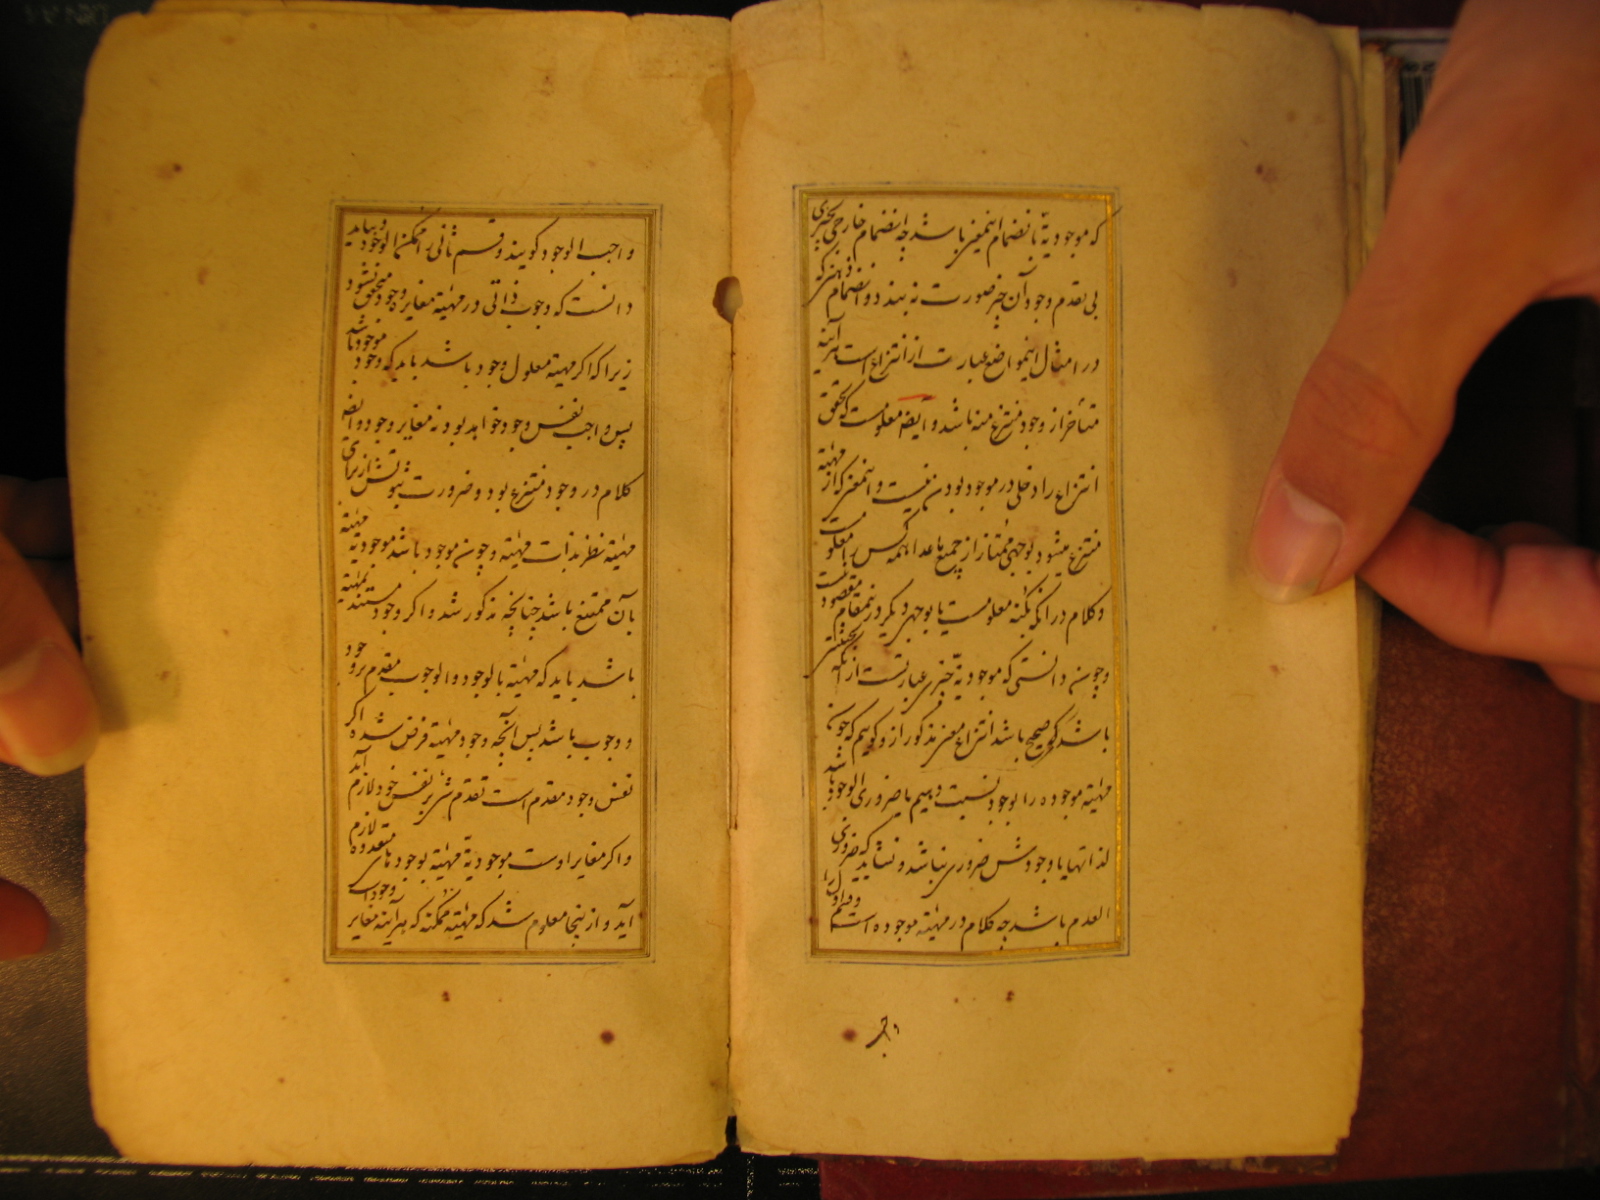 که موجودیة بانضمام اینمعنی باشد چه انضمام خارجی بچیزی
بی تقدم وجود آن چیز صورت نه بندد و انضمام ذهنی که
در امثال اینمواضع عبارت از انتزاع است هرآینه
متأخر از وجود منتزع منه باشد و ایضا معلومست که تحقق
انتزاع را دخلی در موجود بودن نیست و اینمعنی که از مهیته
منتزع میشود بوجهی ممتاز از جمیع ماعدا همه کس را معلومست
و کلام در آنکه بکنه معلومست یا بوجهی دیگر درینمقام مقصود نیست
و چون دانستی که موجودیة چیزی عبارتست از آنکه بحیثیتی
باشد که صحیح باشد انتزاع معنی مذکور از و گوییم که چون
مهیته موجوده را بوجود نسبت دهیم یا ضروری الوجود باشد
لذاتها یا وجودش ضروری نباشد و نشاید که ضروری
العدم باشد چه کلام در مهیته موجوده است و قسم اول را
واجب
واجب الوجود گویند و قسم ثانی را ممکن الوجود و بباید
دانست که وجوب ذاتی در مهیته مغایر وجود متحقق نشود
زیرا که اگر مهیته معلول وجود باشد باید که وجود موجود باشد
پس واجب نفس وجود خواهد بود نه مغایر وجود و ایضا
کلام در وجود منتزع بود و ضرورت ثبوتش از برای
مهیته نظر بذات مهیته و چون موجود باشد موجودیة مهیته
بآن ممتنع باشد چنانچه مذکور شد و اگر وجود مستند بمهیته
باشد باید که مهیته بالوجود و الوجوب مقدم بر وجود
و وجوب باشد پس آنچه وجود مهیته فرض شده اگر
نفس وجود مقدم است تقدم شیء بر نفس خود لازم آید
و اگر مغایر اوست موجودیة مهیته بوجودهای متعدده لازم
آید و از ینجا معلوم شد که مهیته ممکنه که هرآینه مغایر وجود است